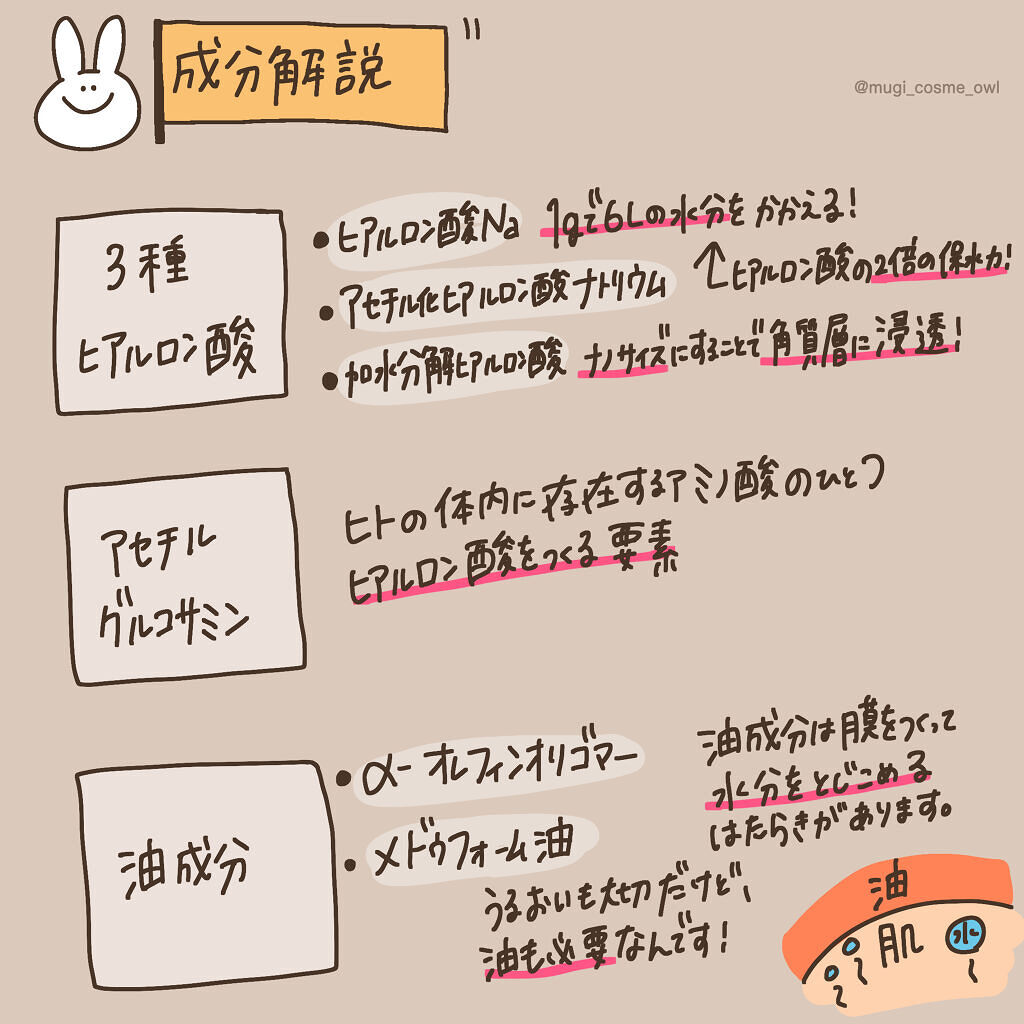 成分解説
@mugi_cosme_owl
3種
ヒアルロン酸
・ヒアルロン酸Na 1gで6Lの水分をかかえる!
・アセチル化ヒアルロン酸ナトリウム ↑ヒアルロン酸の2倍の保水力!
・加水分解ヒアルロン酸 ナノサイズにすることで角質層に浸透!
アセチル
グルコサミン
ヒトの体内に存在するアミノ酸のひとつ
ヒアルロン酸をつくる要素
油成分
・α-オレフィンオリゴマー
・メドゥフォーム油
油成分は膜をつくって
水分をとじこめる
はたらきがあります。
うるおいも大切だけど、
油も必要なんです!
油
肌
水